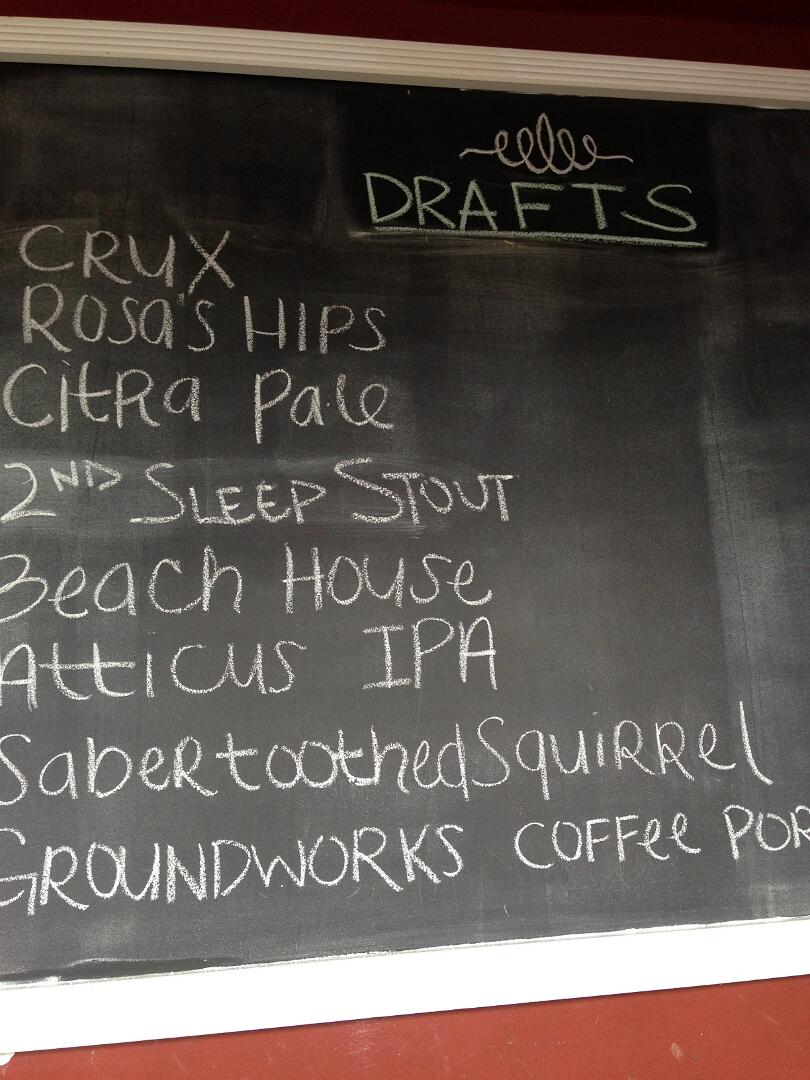 DRAFTS
CRUX
Rosa's HIPS
CitRa Pale
2ND SLEEP STOUT
Beach House
Atticus IPA
SabertoothedSquiRRel
GROUNDWORKS COFFee POR